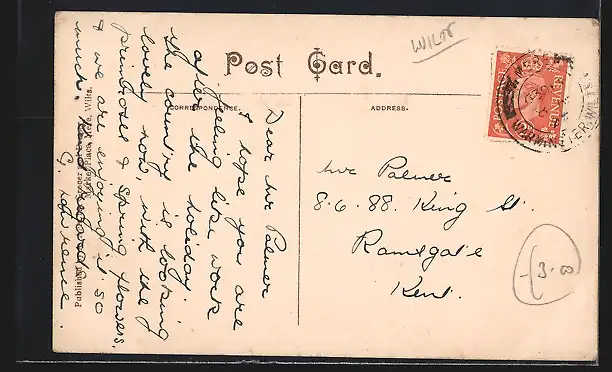 WILTS
Post Card.
CORRESPONDENCE.
ADDRESS.
POSTAGE REVENUE
WARMINSTER, WILTS
Dear Mr Palmer
I hope you are
feeling like work
after the holiday.
The country is looking
lovely now, with the
primroses & spring flowers,
& we are enjoying it so
much. Kind regards
G. Lawrence.
Mr Palmer
86. 88. King St.
Ramsgate
Kent.
3.00
Published
Market Place, Mere, Wilts.